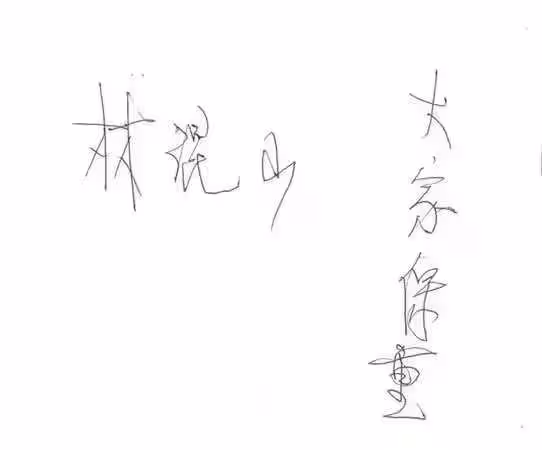 林混山
大家保重